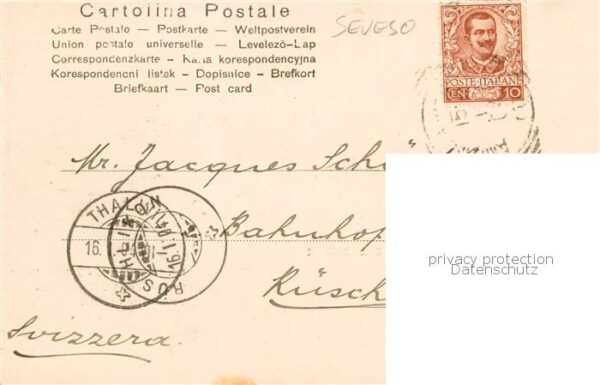 Cartolina Postale
Carte Postale — Postkarte — Weltpostverein
Union postale universelle — Levelező-Lap
Correspondenzkarte - Karta korespondencyjna
Korespondencni listek - Dopisnice - Brefkort
Briefkaart — Post card
SEVESO
POSTE·ITALIANE
CEN 10
Mr. Jacques Sch
Bahnhof
Rüsch
Svizzera.
THALWIL
16.
RÜS
16.I.
privacy protection
Datenschutz